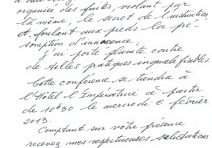 organise des fuites violant par
là même, le secret de l'instruction
et foulant aux pieds la pré-
somption d'innocence.
J'ai porté plainte contre
de telles pratiques inqualifiables
Cette conférence se tiendra à
l'Hôtel l'Impératrice à partir
de 10h30 le mercredi 6 février
2013.
Comptant sur votre présence
recevez mes respectueuses salutations